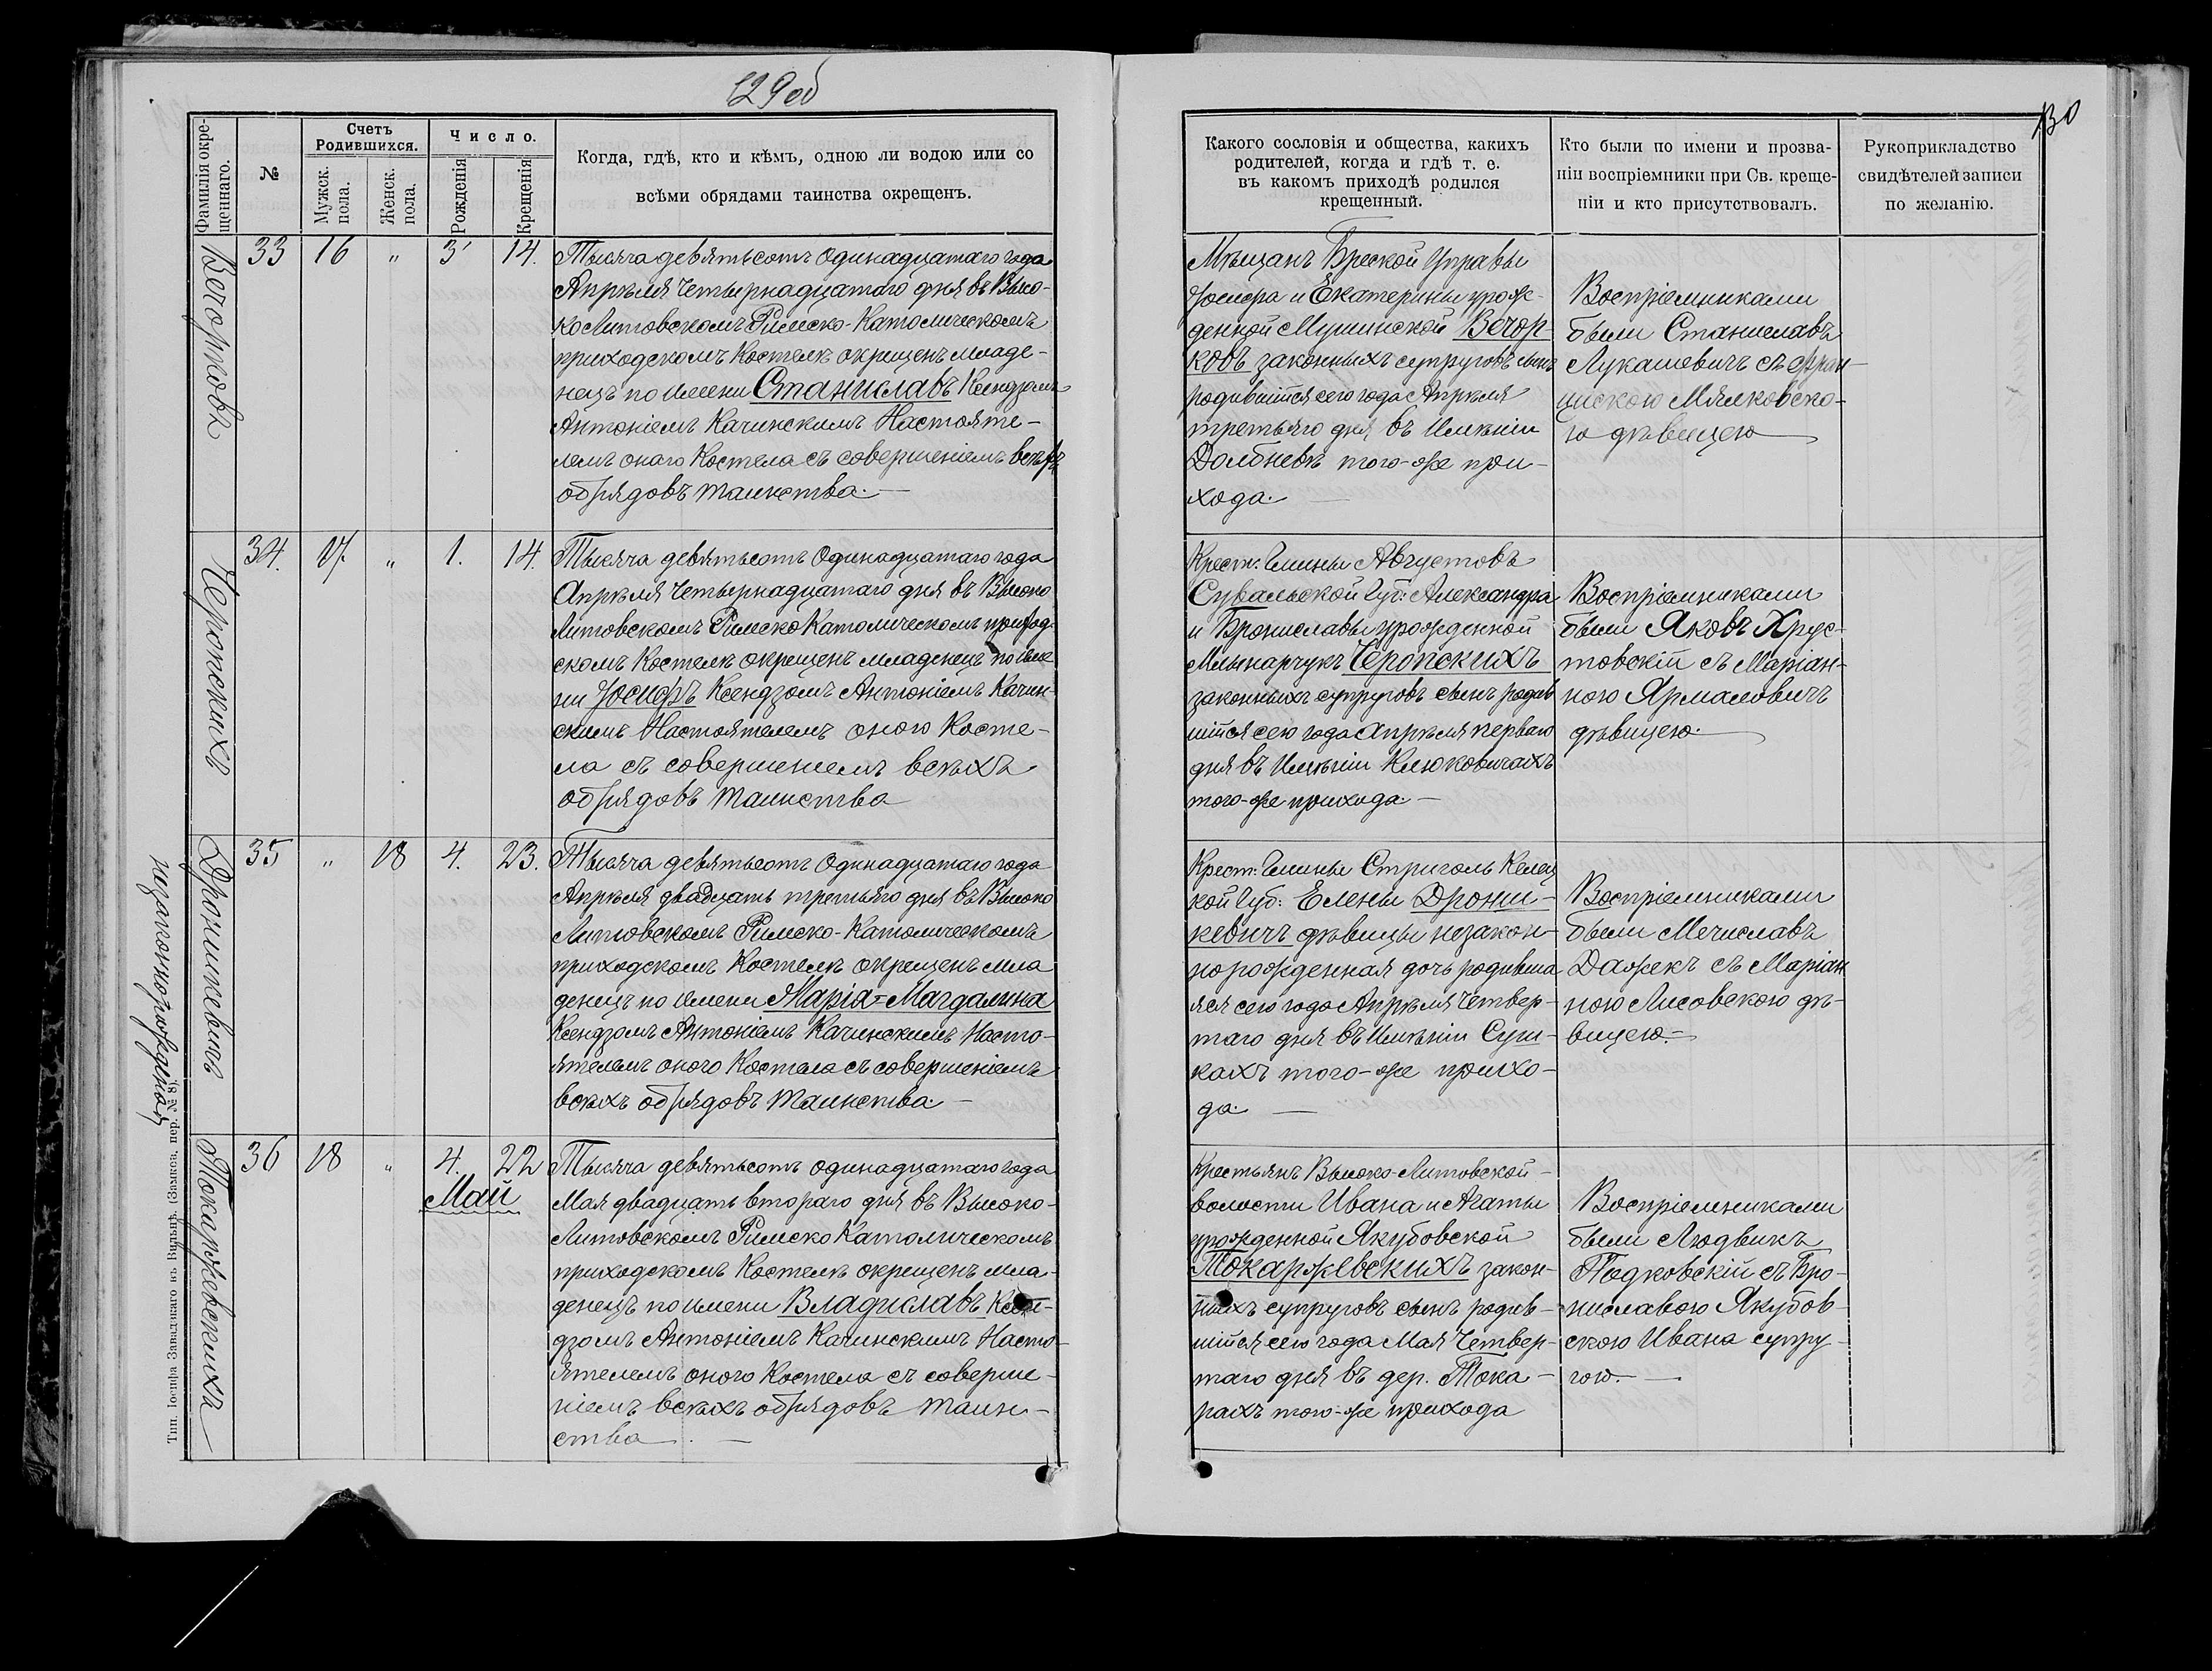 129об
Фамилія окре-
щеннаго.
№
Счетъ
Родившихся.
Мужск.
пола.
Женск.
пола.
Число.
Рожденія
Крещенія
Когда, гдѣ, кто и кѣмъ, одною ли водою или со
всѣми обрядами таинства окрещенъ.
Вечорковъ
33 16 „ 3 14.
Тысяча девятьсотъ одинадцатаго года
Апрѣля четырнадцатаго дня въ Высо-
ко Литовскомъ Римско-Католическомъ
приходскомъ Костелѣ окрещенъ младе-
нецъ по имени Станиславъ Ксендзомъ
Антоніемъ Качинскимъ Настояте-
лемъ онаго Костела съ совершеніемъ всѣхъ
обрядовъ таинства.—
Черопскихъ
34. 17. „ 1. 14.
Тысяча девятьсотъ одинадцатаго года
Апрѣля четырнадцатаго дня въ Высоко
Литовскомъ Римско Католическомъ приход-
скомъ Костелѣ окрещенъ младенецъ по име
ни Іосифъ Ксендзомъ Антоніемъ Качин-
скимъ Настоятелемъ оного Косте-
ла съ совершеніемъ всѣхъ
обрядовъ таинства
Дроншкевичъ
незаконнорожденная
35 „ 18 4. 23.
Тысяча девятьсотъ одинадцатаго года
Апрѣля двадцать третьяго дня въ Высоко
Литовскомъ Римско-Католическомъ
приходскомъ Костелѣ окрещенъ мла
денецъ по имени Марія=Магдалина
Ксендзомъ Антоніемъ Качинскимъ Насто-
ятелемъ оного Костела съ совершеніемъ
всѣхъ обрядовъ таинства.—
Токаржевскихъ
36 18 „ 4. 22
Май
Тысяча девятьсотъ одинадцатаго года
Мая двадцать втораго дня въ Высоко-
Литовскомъ Римско Католическомъ
приходскомъ Костелѣ окрещенъ мла-
денецъ по имени Владиславъ Ксен-
дзомъ Антоніемъ Качинскимъ Насто-
ятелемъ оного Костела съ соверше-
ніемъ всѣхъ обрядовъ таин-
ства.—
Тип. Іосифа Завадзкаго въ Вильнѣ. (Замков. пер. № 8).
130
Какого сословія и общества, какихъ
родителей, когда и гдѣ т. е.
въ какомъ приходѣ родился
крещенный.
Кто были по имени и прозва-
ніи воспріемники при Св. креще-
ніи и кто присутствовалъ.
Рукоприкладство
свидѣтелей записи
по желанію.
Мѣщанъ Бреской Управы
Іосифа и Екатерины урож-
денной Мушинской Вечор-
ковъ законныхъ супруговъ сынъ
родившійся сего года Апрѣля
третьяго дня, въ Имѣніи
Долбневѣ того-же при-
хода.—
Воспріемниками
были Станиславъ
Лукашевичъ съ Фран-
цискою Мялковско-
ю дѣвицею
Крест: Гмины Августовъ
Сувальской Губ: Александра
и Брониславы урожденной
Млынарчукъ Черопскихъ
законныхъ супруговъ сынъ родив
шійся сего года Апрѣля перваго
дня въ Имѣніи Клюковичахъ
того-же прихода.—
Воспріемниками
были Яковъ Хрус-
товскій съ Маріан-
ною Ярмаловичъ
дѣвицею.
Крест: Гмины Стриголь Келец
кой Губ: Елены Дронш-
кевичъ дѣвицы незакон-
норожденная дочь родивша
яся сего года Апрѣля четвер-
таго дня въ Имѣніи Суш-
кахъ того-же прихо-
да.—
Воспріемниками
были Мечиславъ
Дажекъ съ Маріан
ною Лисовскою дѣ-
вицею.—
Крестьянъ Высоко-Литовской-
волости Ивана и Агаты
урожденной Якубовской
Токаржевскихъ закон-
ныхъ супруговъ сынъ родив-
шійся сего года Мая четвер-
таго дня въ дер. Тока-
рахъ того-же прихода
Воспріемниками
были Людвикъ
Подковскій съ Бро-
ниславою Якубов-
скою Ивана супру-
гою.—